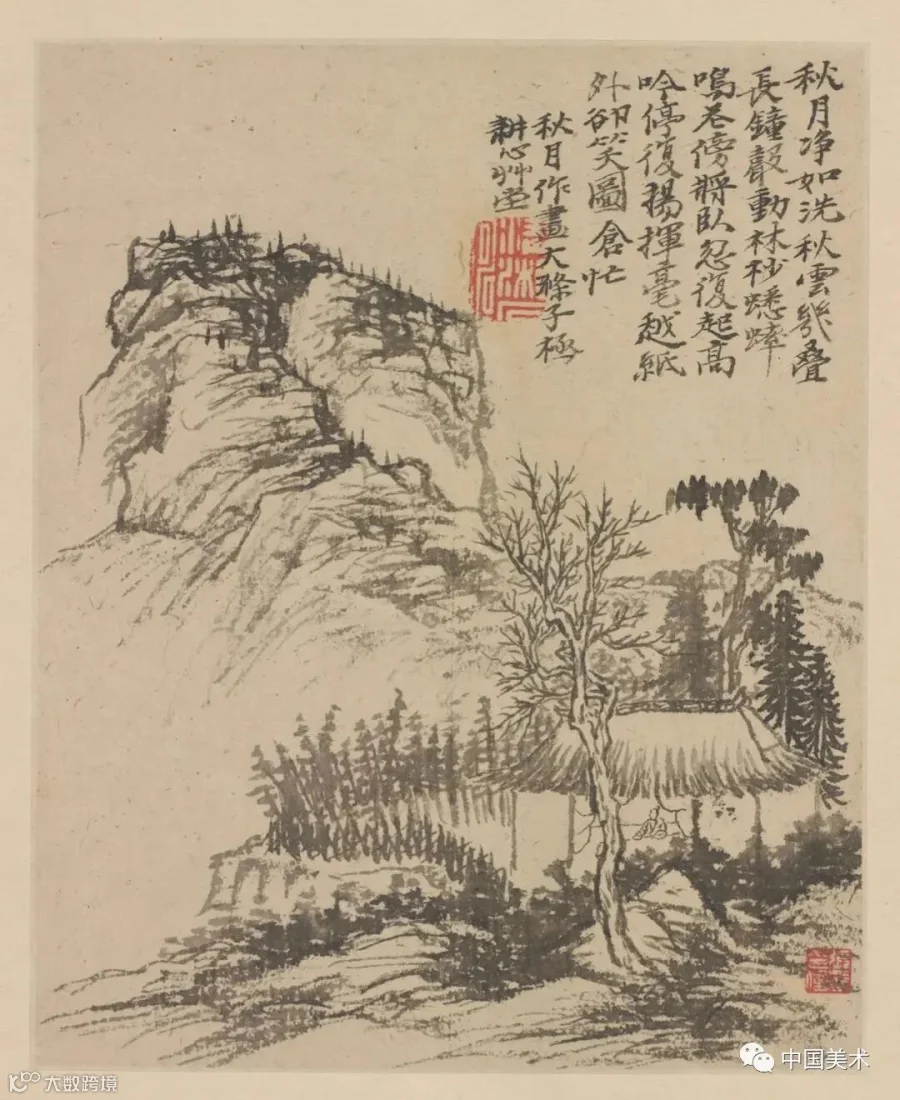 秋月净如洗秋雲幾疊
長鐘聲動林杪蟋蟀
鳴苍傍將臥忽復起高
吟停復揚揮毫越紙
外卻笑圖倉忙
秋月作畫大滌子極
耕心艸堂
中国美术
大数跨境